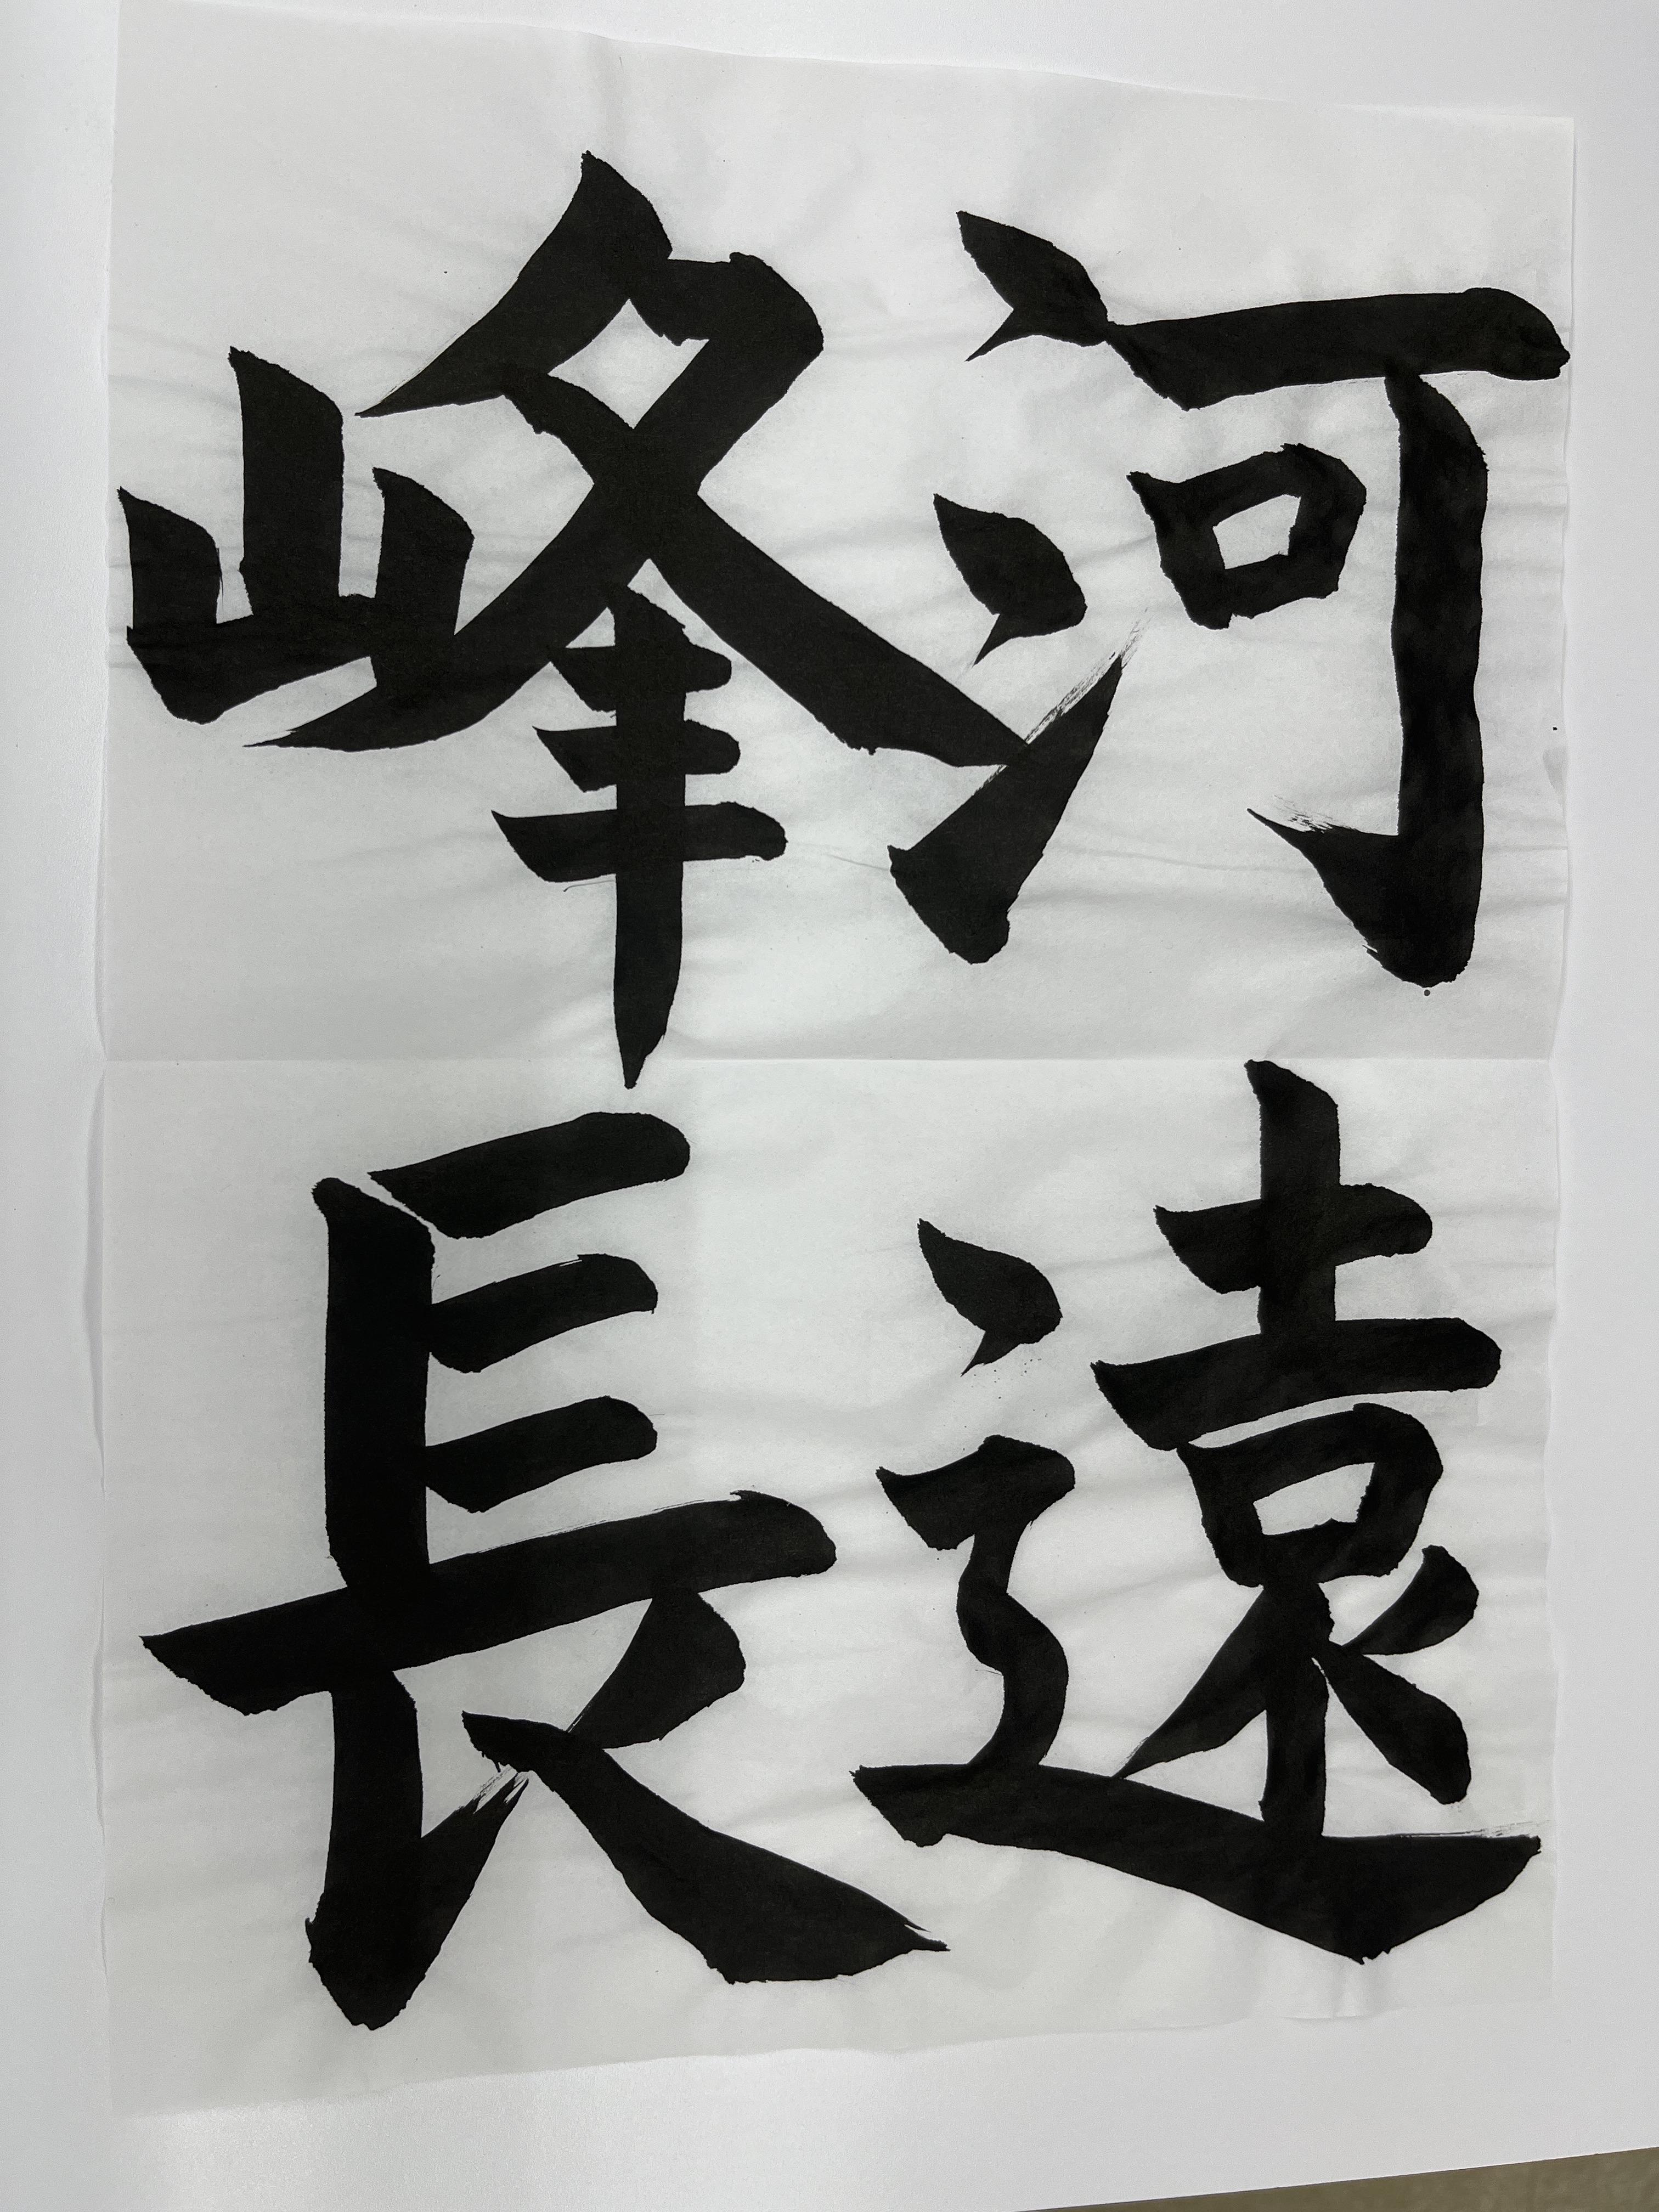 河遠
峰長